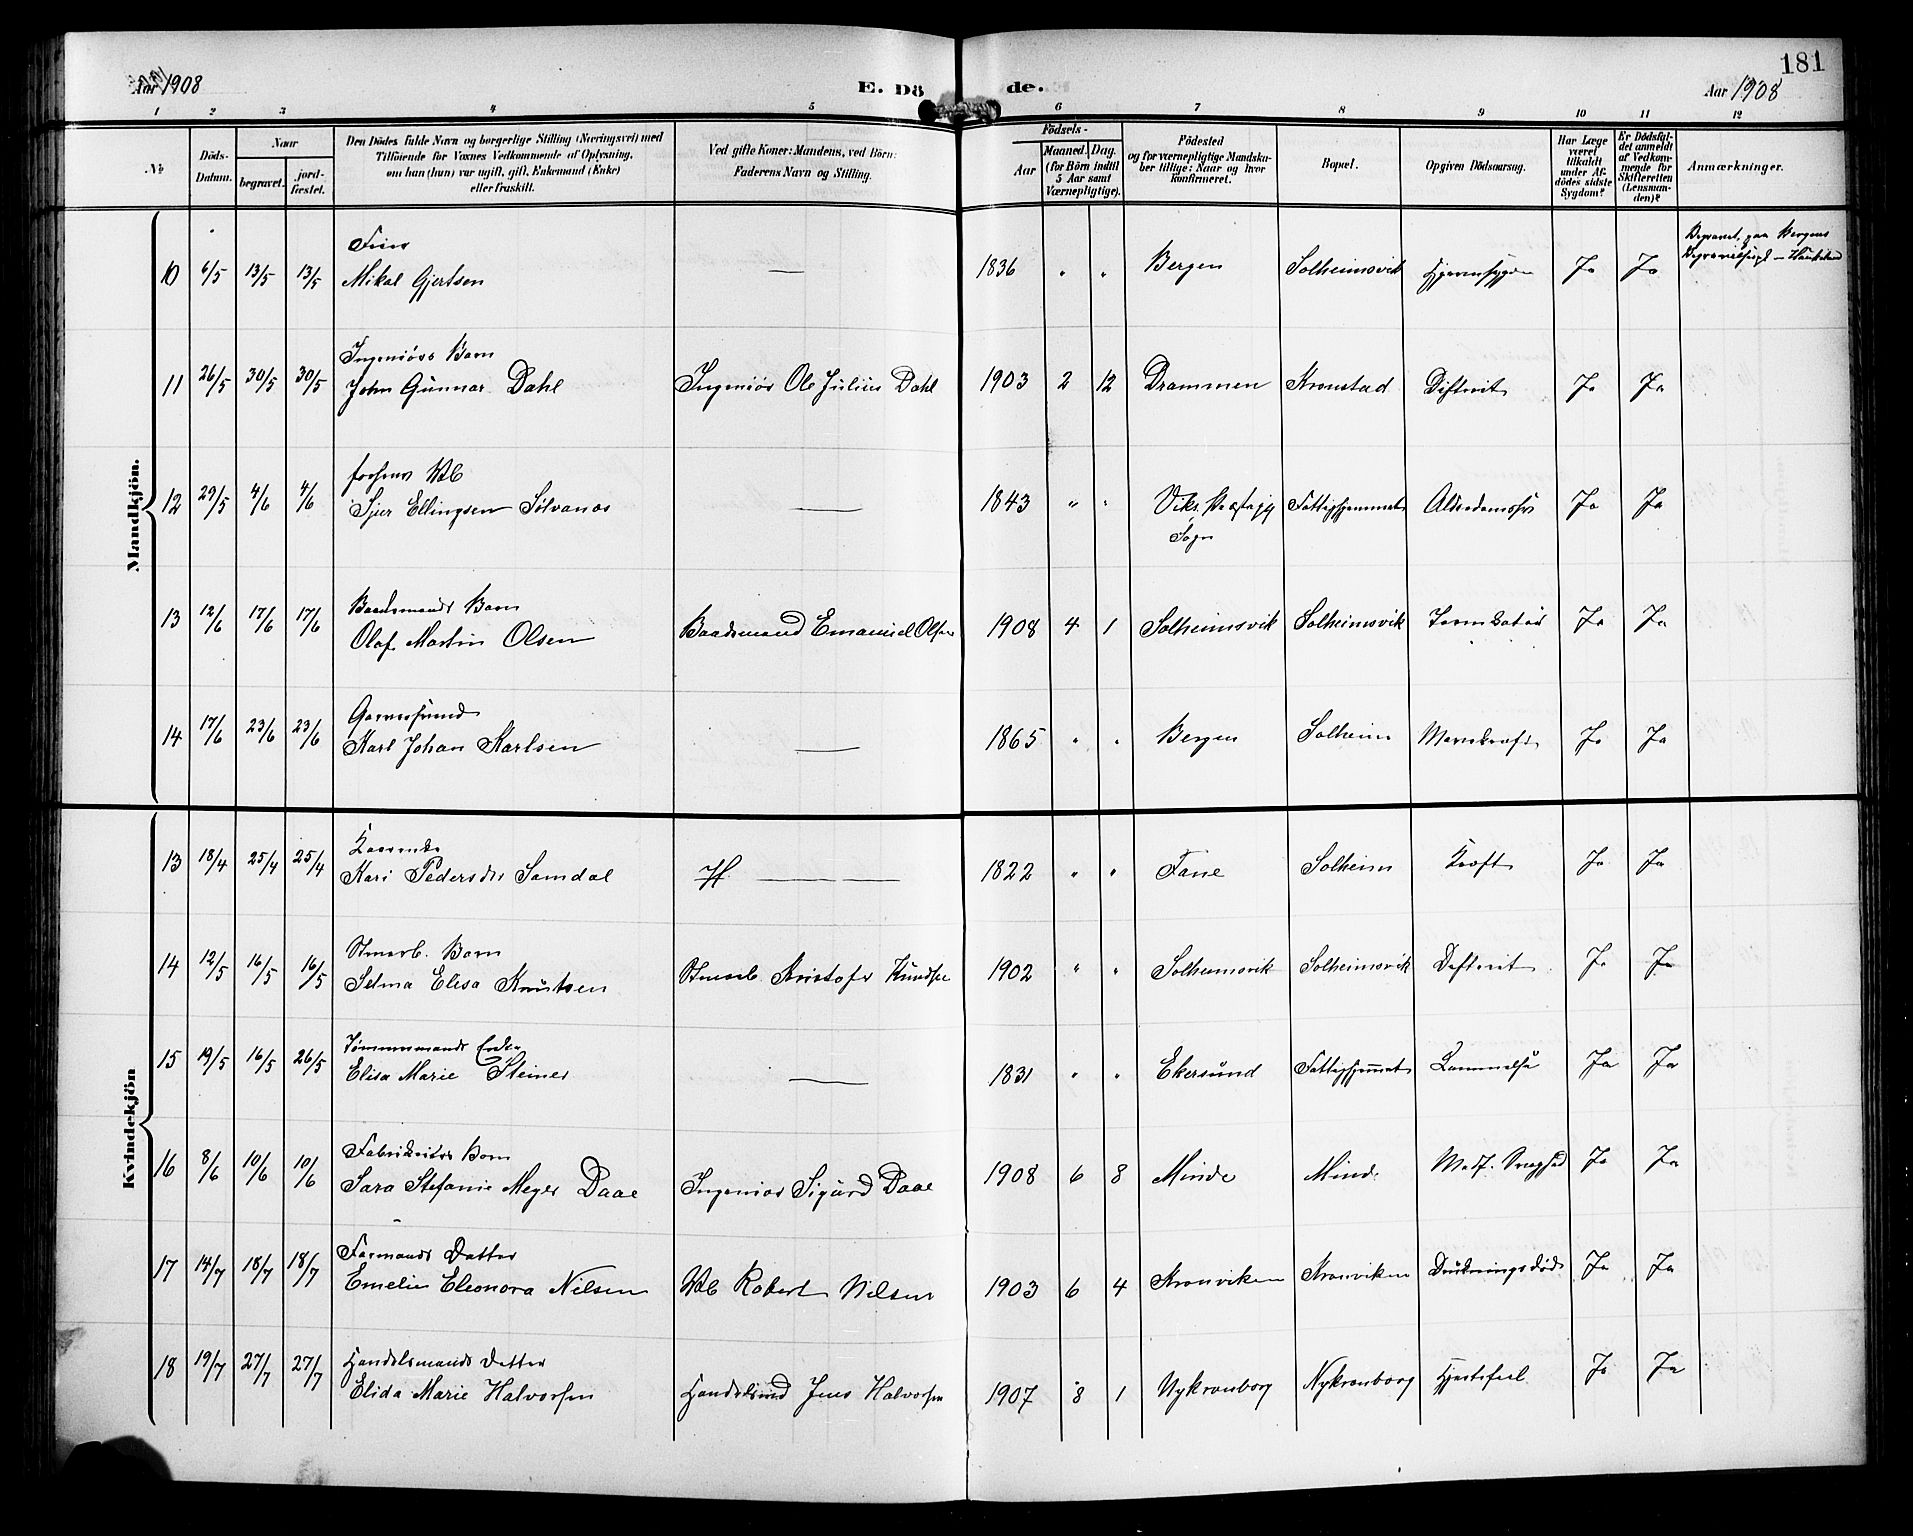 181
Aar 1908
E. Dö
de.
Aar 1908
1 2 3 4 5 6 7 8 9 10 11 12
No
Döds-Datum.
Naar
begravet.
jord-fæstet.
Den Dödes fulde Navn og borgerlige Stilling (Næringsvei) med
Tilföiende for Voxnes Vedkommende af Oplysning,
om han (hun) var ugift, gift, Enkemand (Enke)
eller fraskilt.
Ved gifte Koner: Mandens, ved Börn:
Faderens Navn og Stilling.
Födsels-
Aar
Maaned.
Dag.
(for Börn indtil
5 Aar samt
Værnepligtige).
Födested
og for værnepligtige Mandsku-
ber tillige: Naar og hvor
konfirmeret.
Bopæl.
Opgiven Dödsaarsag.
Har Læge
været
tilkaldt
under Af-
dödes sidste
Sygdom?
Er Dödsfal-
det anmeldt
af Vedkom-
mende for
Skifteretten
(Lensman-
den)?
Anmærkninger.
Mandkjön.
Feier
10 6/5 13/5 13/5 Mikal Gjertsen — 1836 " " Bergen Solheimsvik Ja Ja
Begravet paa Bergens
Ingeniörs Barn
11 26/5 30/5 30/5 John Gunnar Dahl Ingeniör Ole Julius Dahl 1903 2 12 Drammen Kronstad Difterit Ja Ja
12 29/5 4/6 4/6 Sjur Ellingsen Sölvanos — 1843 " " Viks Præstegj Fattighjemmet Ja Ja
Sogn
Baadsmands Barn
13 12/6 17/6 17/6 Olaf Martin Olsen Baadsmand Emanuel Olsen 1908 4 1 Solheimsvik Solheimsvik Ja Ja
14 17/6 23/6 23/6 Karl Johan Karlsen — 1865 " " Bergen Solheim Ja Ja
Kvindekjön
13 18/4 25/4 25/4 Kari Pedersdtr Samdal — 1822 " " Fane Solheim Kræft Ja Ja
Barn
14 12/5 16/5 16/5 Selma Elisa Knutsen Kristofer Knudsen 1902 " " Solheimsvik Solheimsvik Difterit Ja Ja
Tömmermands Enke
15 19/5 16/5 26/5 Elisa Marie Steiner — 1831 " " Ekersund Fattighjemmet Lammelse Ja Ja
Fabrikeiers Barn
16 8/6 10/6 10/6 Sara Stefanie Meyer Daae Ingeniör Sigurd Daae 1908 6 8 Minde Minde Medf. Svaghed Ja Ja
Formands Datter
17 14/7 18/7 18/7 Emelie Eleonora Nilsen Robert Nilsen 1903 6 4 Kronviken Kronviken Drukningsdöd Ja Ja
Handelsmands Datter
18 19/7 27/7 27/7 Elida Marie Halvorsen Handelsmd Jens Halvorsen 1907 8 1 Nykronborg Nykronborg Hjertefeil Ja Ja